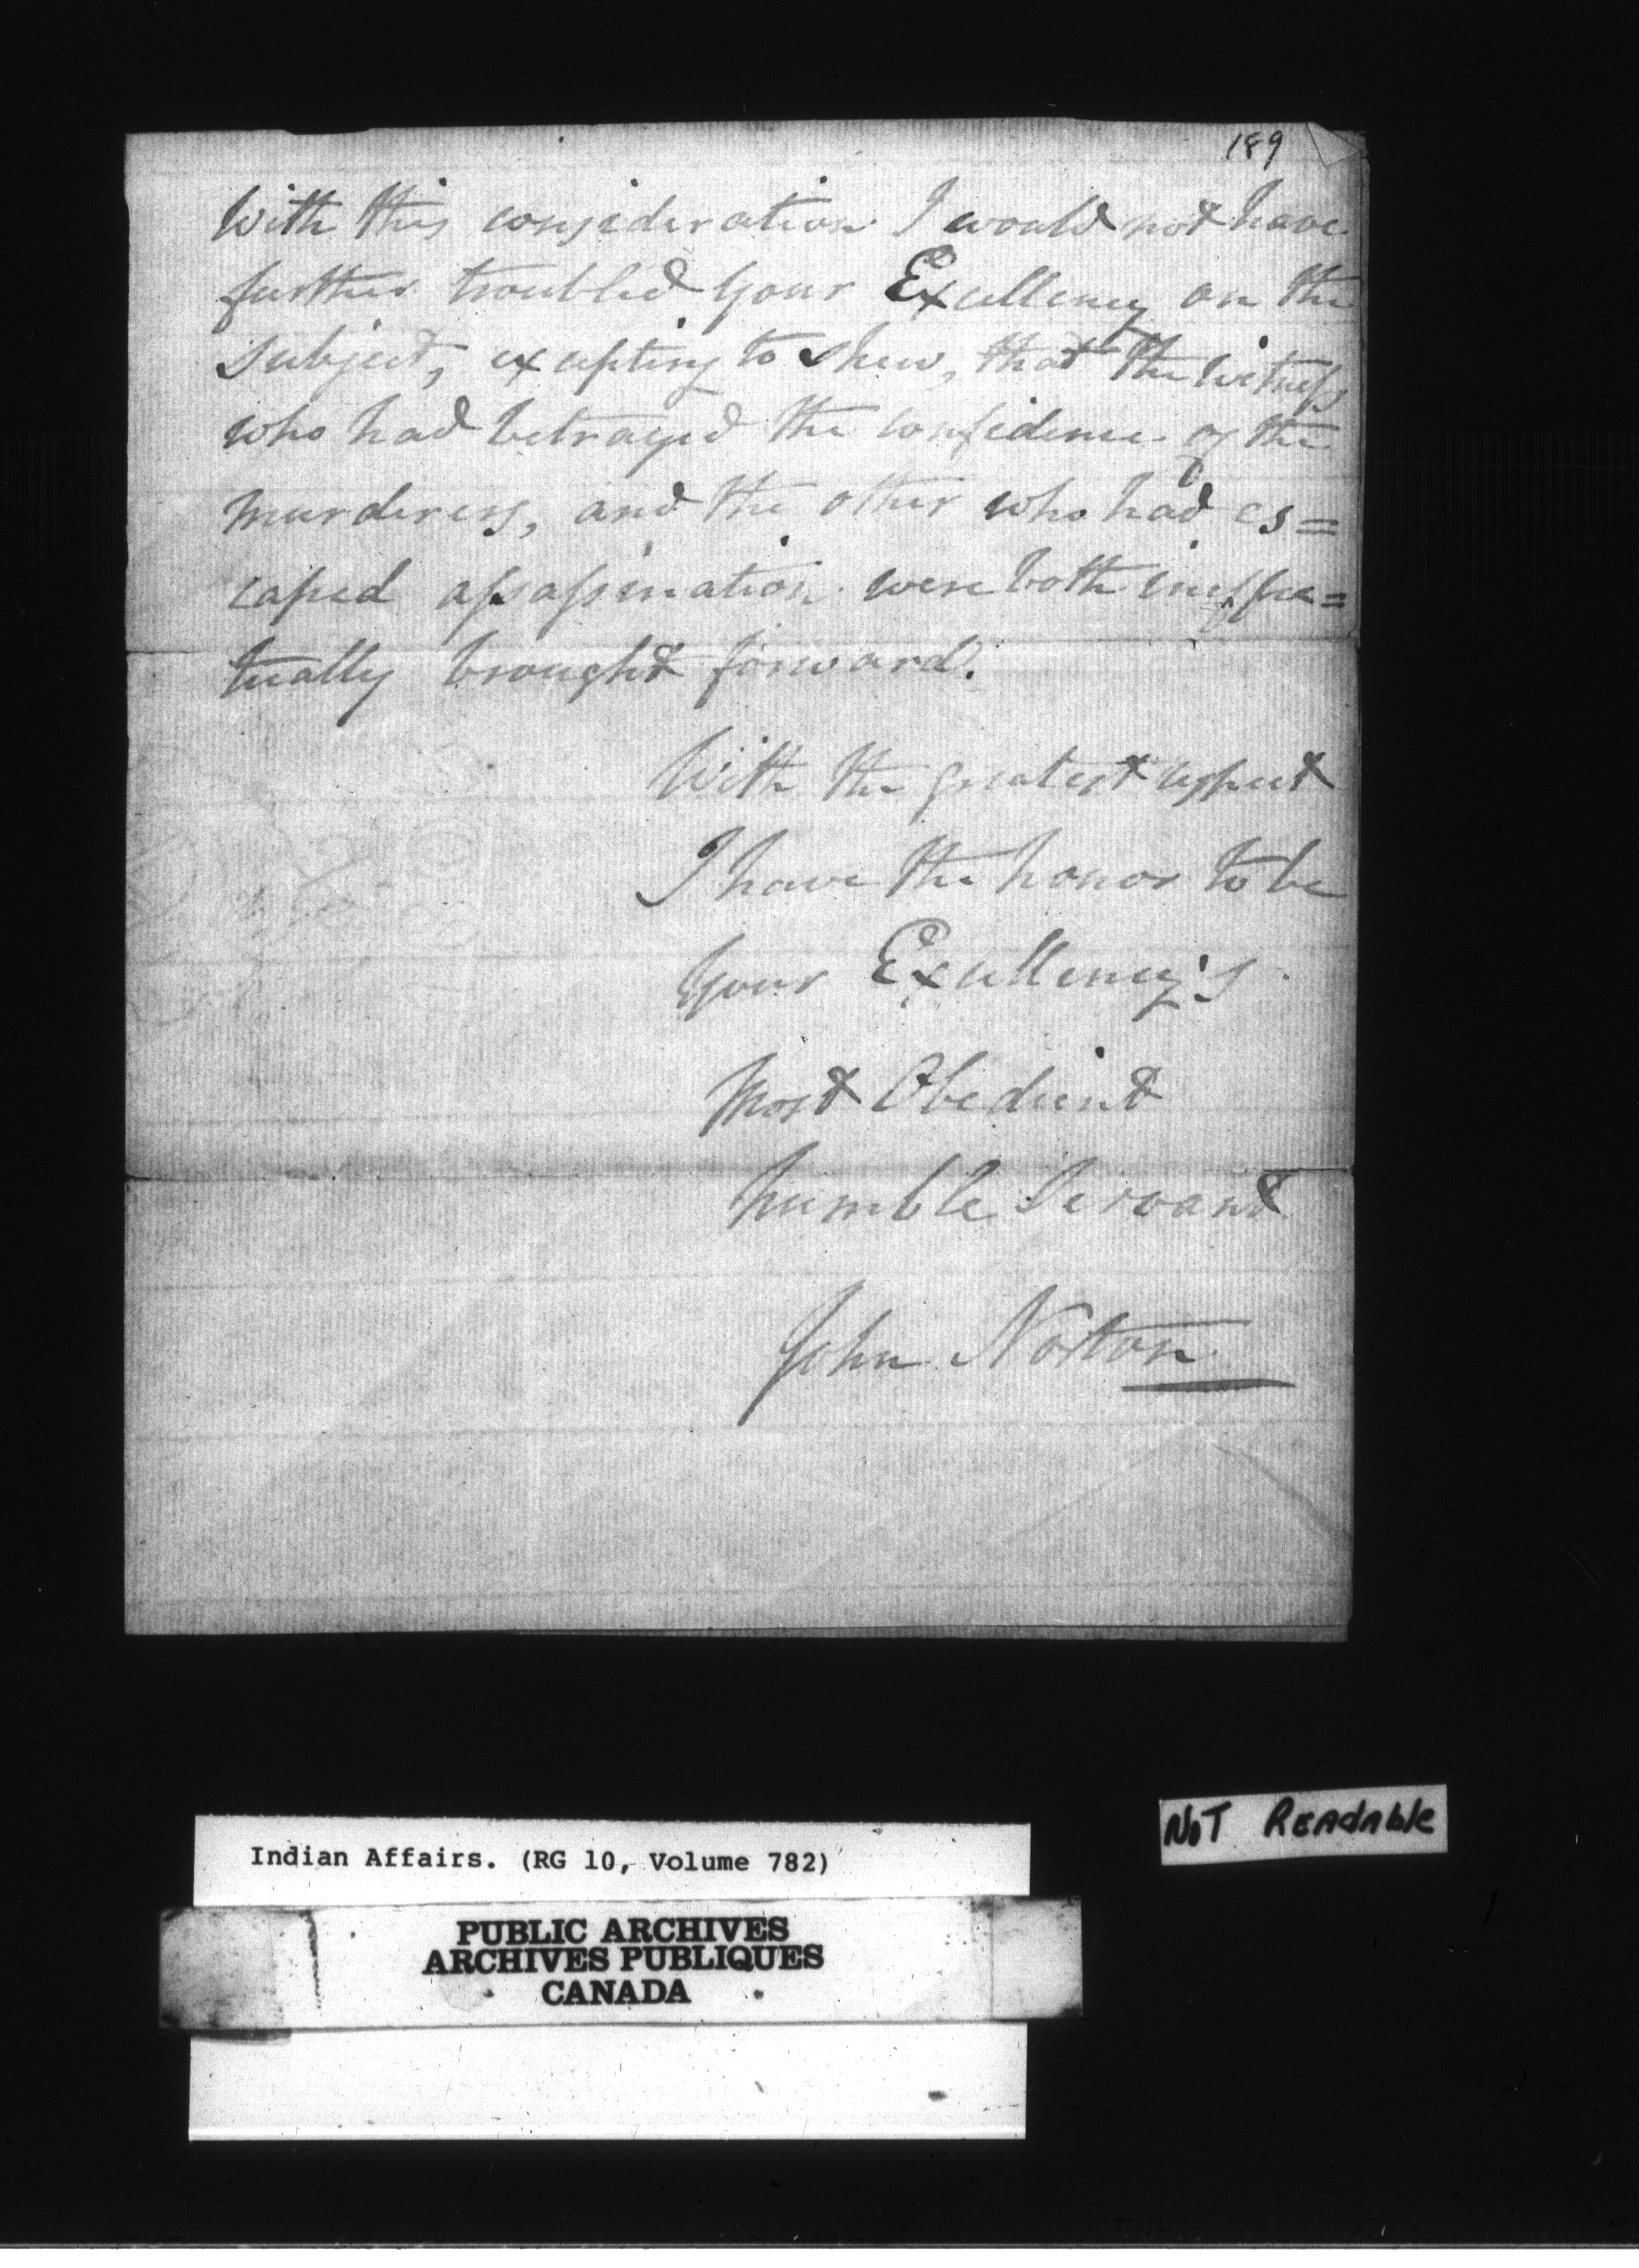 189
With this consideration I would not have
further troubled Your Excellency on the
subject, excepting to shew, that the witness
who had betrayed the confidence of the
murderers, and the other who had es=
caped assassination were both ineffec=
tually brought forward.
With the greatest respect
I have the honor to be
Your Excellency's
Most Obedient
humble Servant
John Norton
Indian Affairs. (RG 10, Volume 782)
NOT READABLE
PUBLIC ARCHIVES
ARCHIVES PUBLIQUES
CANADA